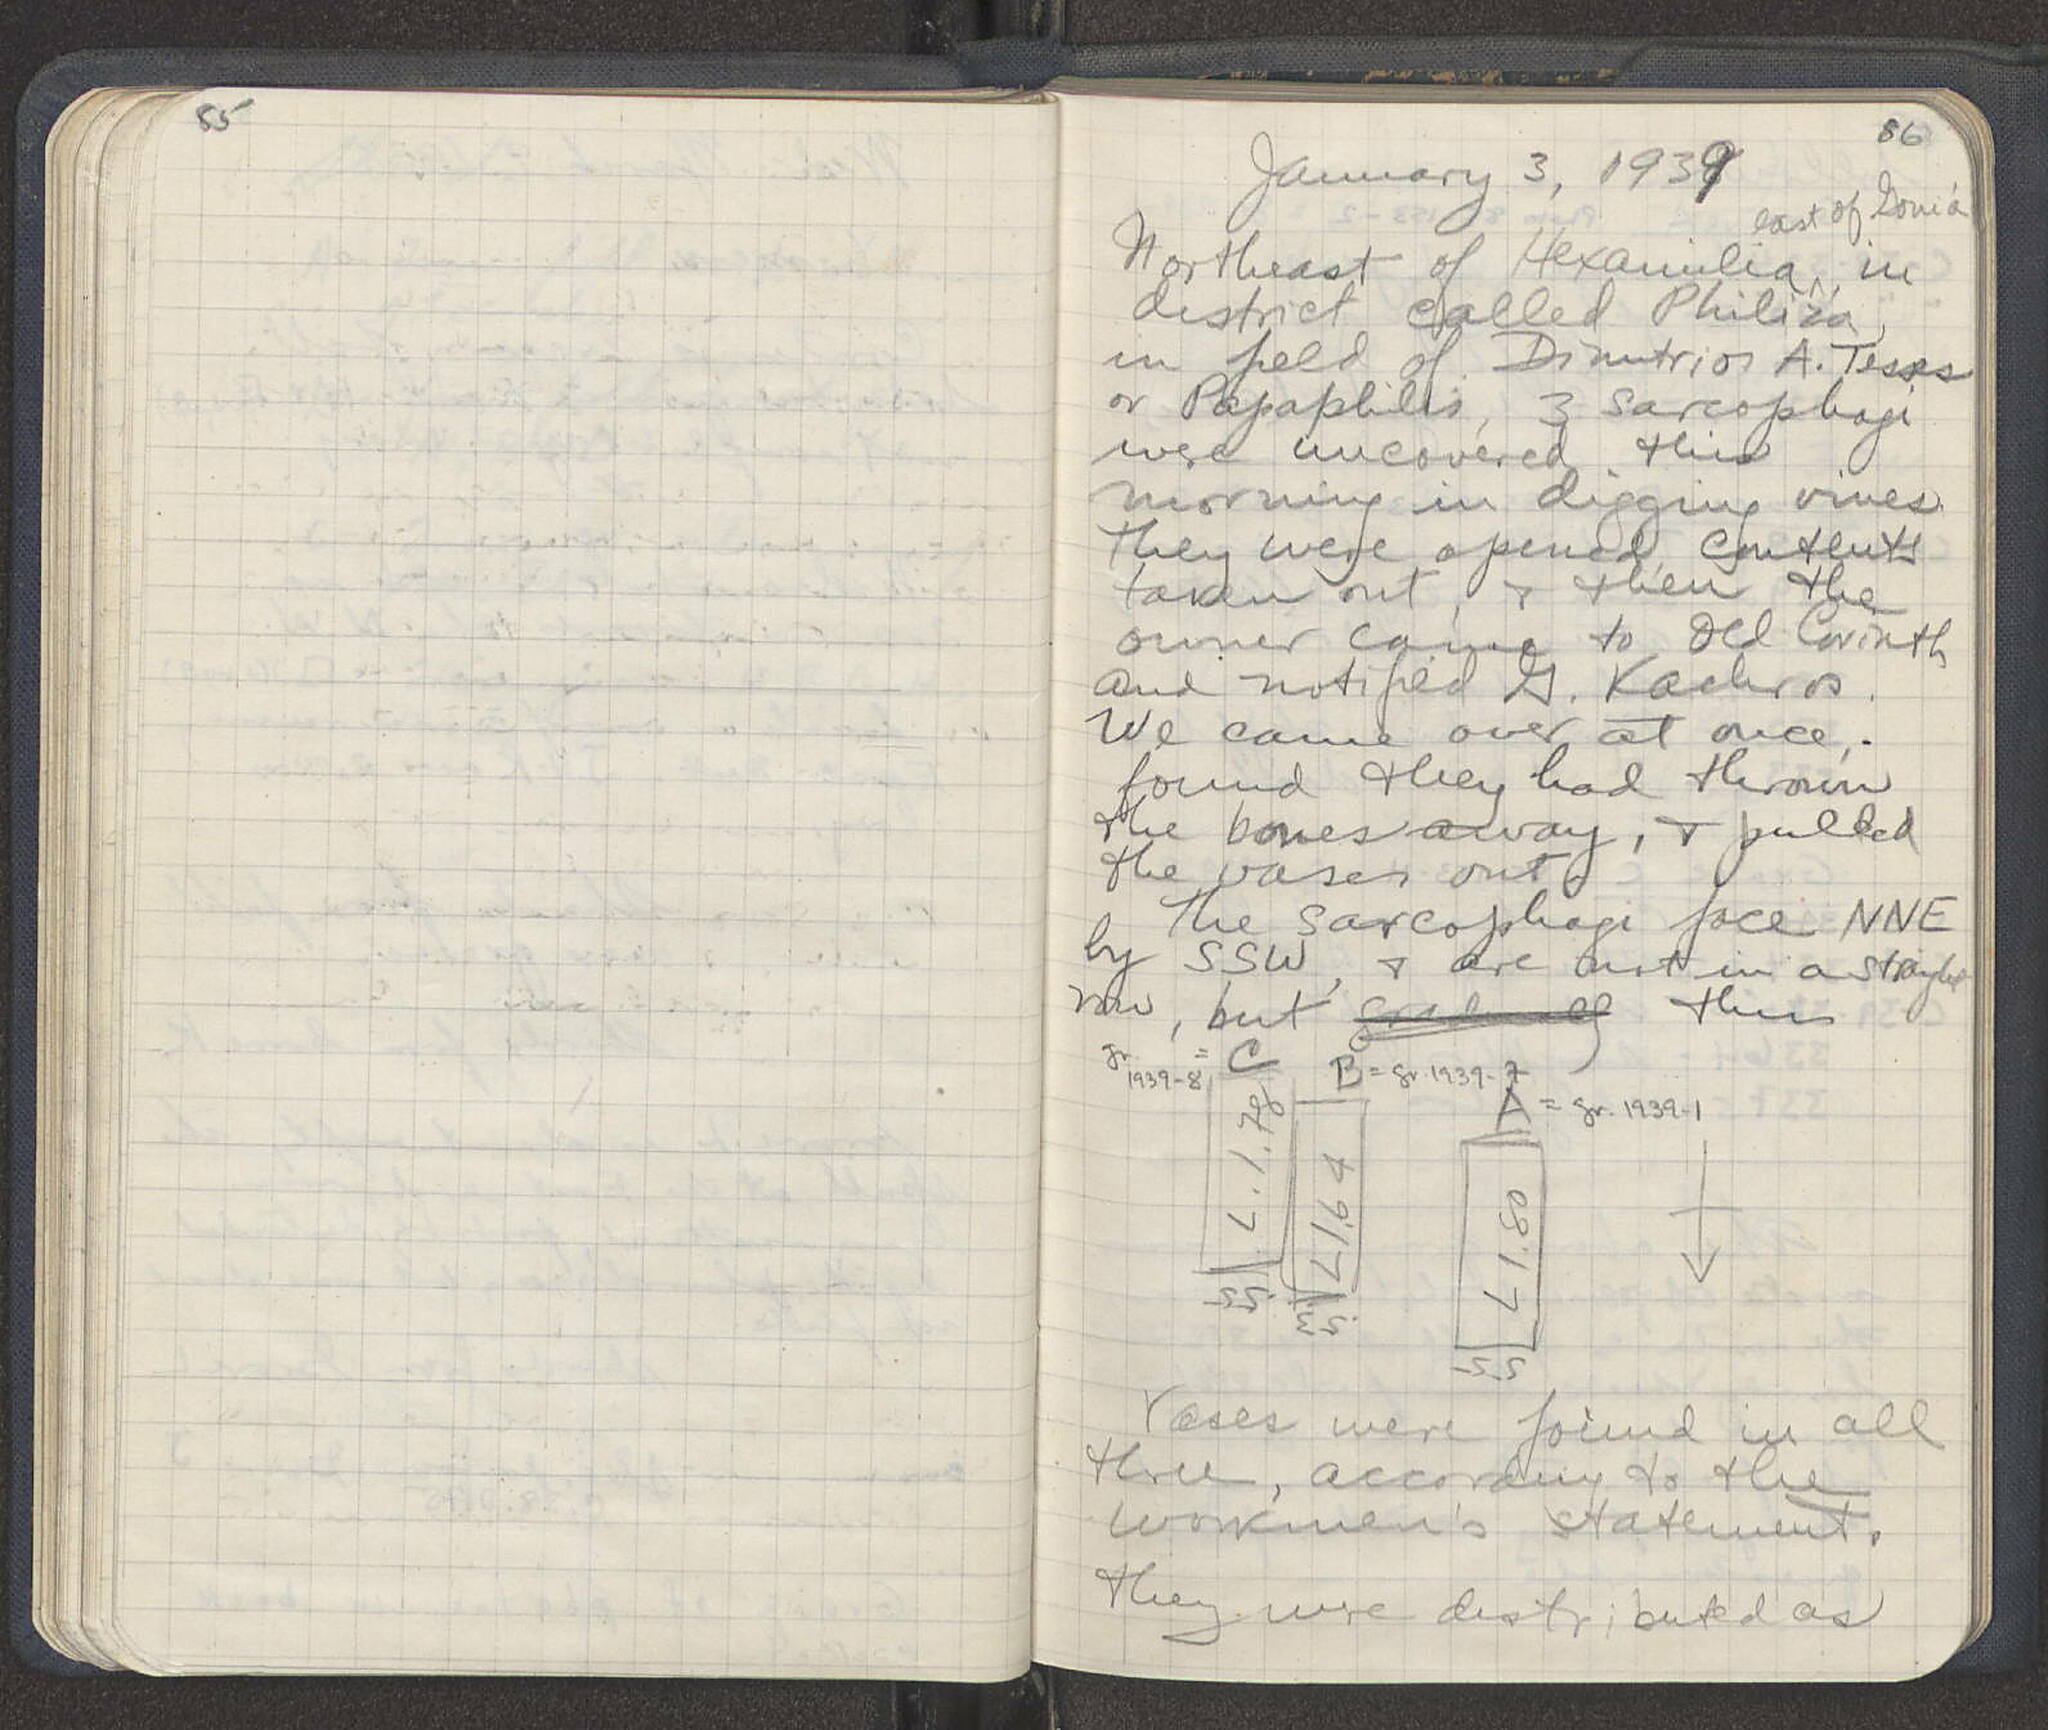 85
86
January 3, 1939
east of Gonia
Northeast of Hexamilia, in
district called Philiza,
in field of Dimitrios A. Tessas
or Papaphilis, 3 sarcophagi
were uncovered this
morning in digging vines.
They were opened, contents
taken out, & then the
owner came to Old Corinth
and notified G. Kachros.
We came over at once,
found they had thrown
the bones away, & pulled
the vases out.
The sarcophagi face NNE
by SSW, & are not in a straight
row, but gradually thus
gr. 1939-8 = C
B = gr. 1939-7
A = gr. 1939-1
L 1.78
L 1.64
L 1.80
.55
.53
.55
Vases were found in all
three, according to the
workmen's statement.
They were distributed as